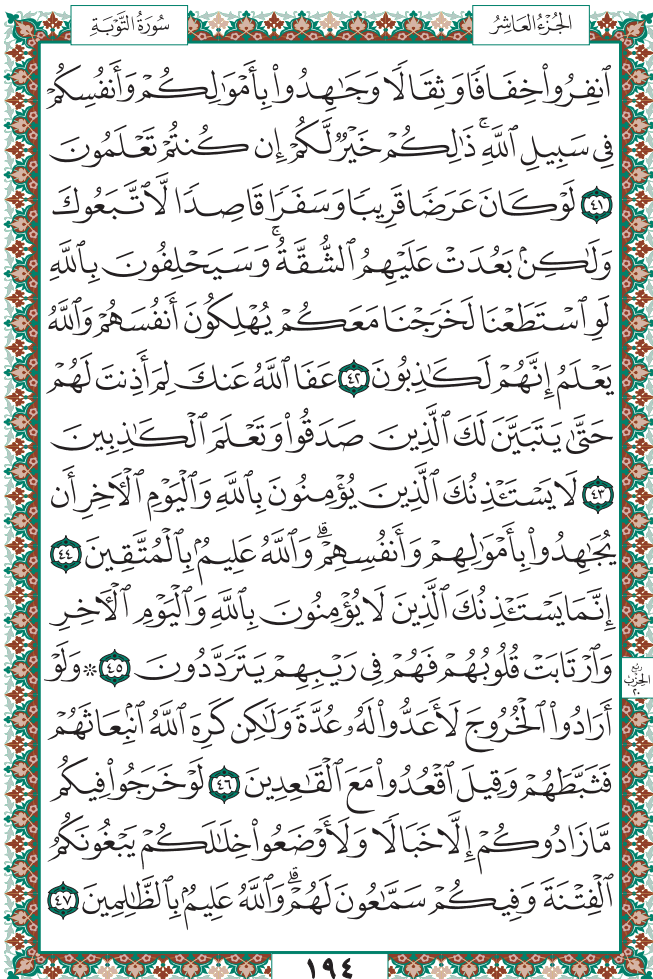 الجُزْءُ العَاشِرُ
سُورَةُ التَّوْبَةِ
ٱنفِرُوا۟ خِفَافًا وَثِقَالًا وَجَـٰهِدُوا۟ بِأَمْوَٰلِكُمْ وَأَنفُسِكُمْ
فِى سَبِيلِ ٱللَّهِ ۚ ذَٰلِكُمْ خَيْرٌ لَّكُمْ إِن كُنتُمْ تَعْلَمُونَ
٤١ لَوْ كَانَ عَرَضًا قَرِيبًا وَسَفَرًا قَاصِدًا لَّٱتَّبَعُوكَ
وَلَـٰكِنۢ بَعُدَتْ عَلَيْهِمُ ٱلشُّقَّةُ ۚ وَسَيَحْلِفُونَ بِٱللَّهِ
لَوِ ٱسْتَطَعْنَا لَخَرَجْنَا مَعَكُمْ يُهْلِكُونَ أَنفُسَهُمْ وَٱللَّهُ
يَعْلَمُ إِنَّهُمْ لَكَـٰذِبُونَ ٤٢ عَفَا ٱللَّهُ عَنكَ لِمَ أَذِنتَ لَهُمْ
حَتَّىٰ يَتَبَيَّنَ لَكَ ٱلَّذِينَ صَدَقُوا۟ وَتَعْلَمَ ٱلْكَـٰذِبِينَ
٤٣ لَا يَسْتَـْٔذِنُكَ ٱلَّذِينَ يُؤْمِنُونَ بِٱللَّهِ وَٱلْيَوْمِ ٱلْـَٔاخِرِ أَن
يُجَـٰهِدُوا۟ بِأَمْوَٰلِهِمْ وَأَنفُسِهِمْ ۗ وَٱللَّهُ عَلِيمٌۢ بِٱلْمُتَّقِينَ ٤٤
إِنَّمَا يَسْتَـْٔذِنُكَ ٱلَّذِينَ لَا يُؤْمِنُونَ بِٱللَّهِ وَٱلْيَوْمِ ٱلْـَٔاخِرِ
وَٱرْتَابَتْ قُلُوبُهُمْ فَهُمْ فِى رَيْبِهِمْ يَتَرَدَّدُونَ ٤٥ ۞ وَلَوْ
رُبْعُ
الحِزْبِ
٢٠
أَرَادُوا۟ ٱلْخُرُوجَ لَأَعَدُّوا۟ لَهُۥ عُدَّةً وَلَـٰكِن كَرِهَ ٱللَّهُ ٱنۢبِعَاثَهُمْ
فَثَبَّطَهُمْ وَقِيلَ ٱقْعُدُوا۟ مَعَ ٱلْقَـٰعِدِينَ ٤٦ لَوْ خَرَجُوا۟ فِيكُم
مَّا زَادُوكُمْ إِلَّا خَبَالًا وَلَأَوْضَعُوا۟ خِلَـٰلَكُمْ يَبْغُونَكُمُ
ٱلْفِتْنَةَ وَفِيكُمْ سَمَّـٰعُونَ لَهُمْ ۗ وَٱللَّهُ عَلِيمٌۢ بِٱلظَّـٰلِمِينَ ٤٧
١٩٤